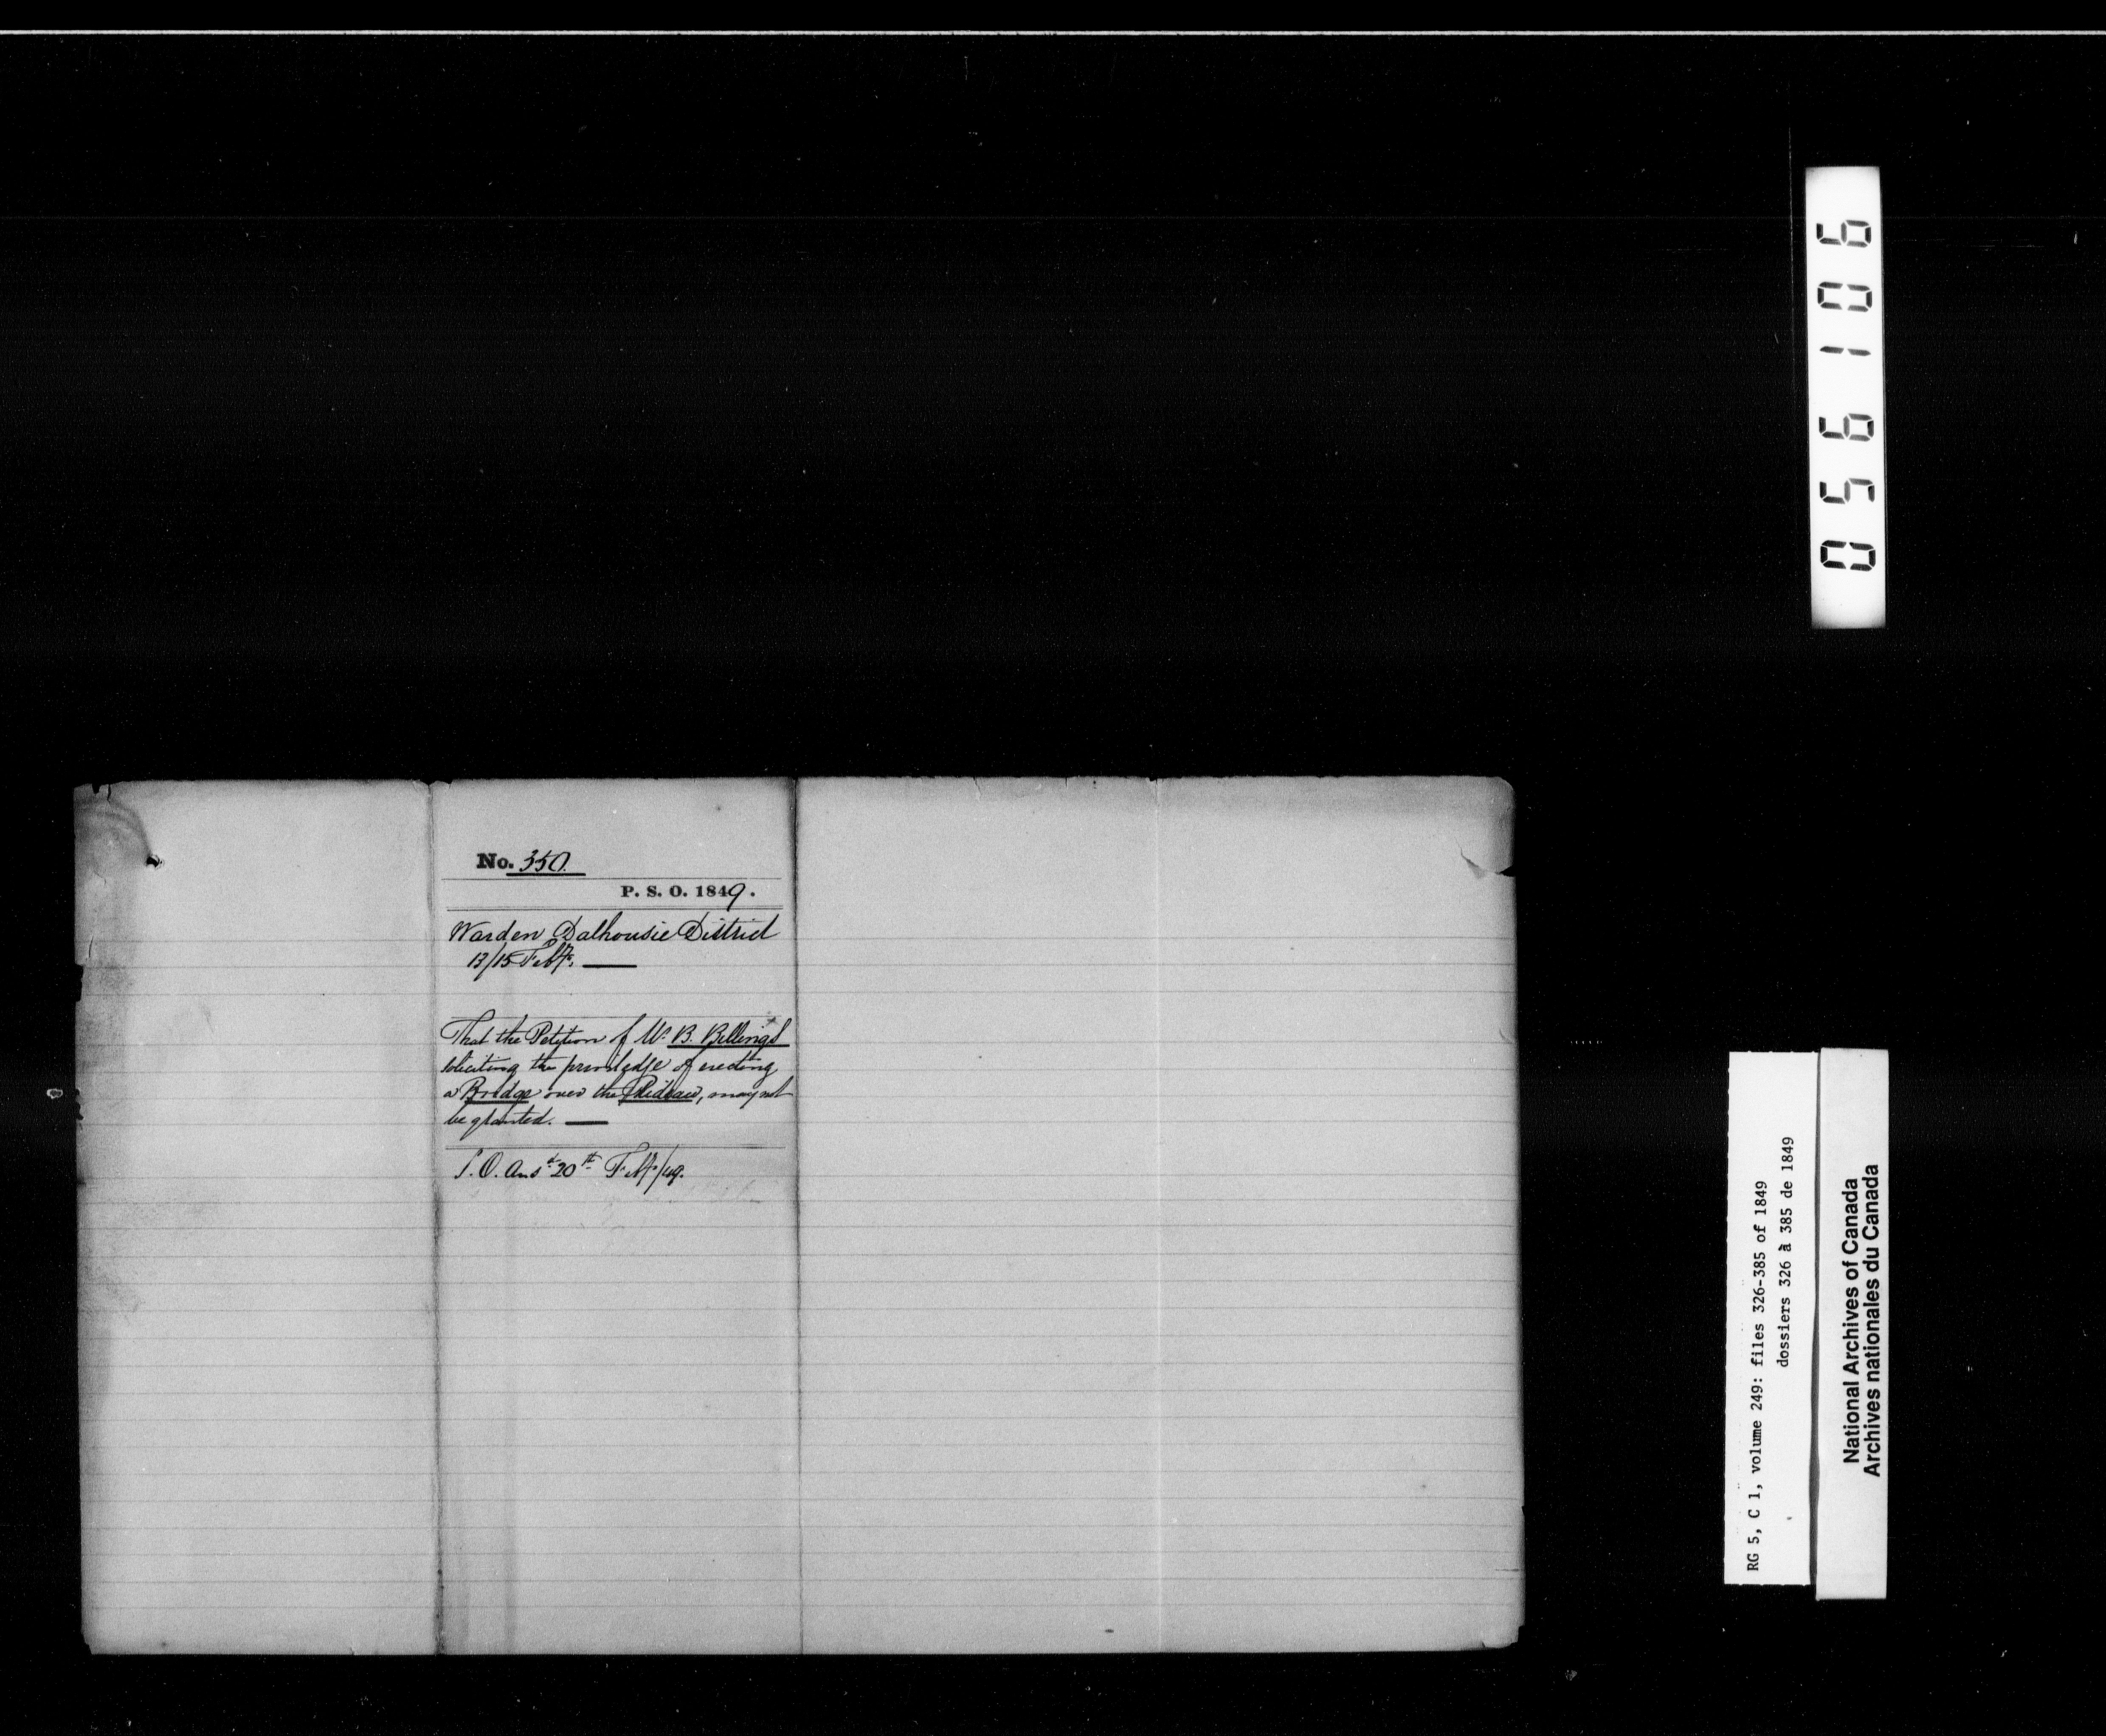 No. 350.
P. S. O. 1849.
Warden Dalhousie District
13/15 Feby. —
That the Petition of Mr. B. Billings
soliciting the priviledge of erecting
a Bridge over the Rideau, may not
be granted. —
Ansd. 20th Feby/49.
056106
RG 5, C 1, volume 249: files 326-385 of 1849
dossiers 326 à 385 de 1849
National Archives of Canada
Archives nationales du Canada